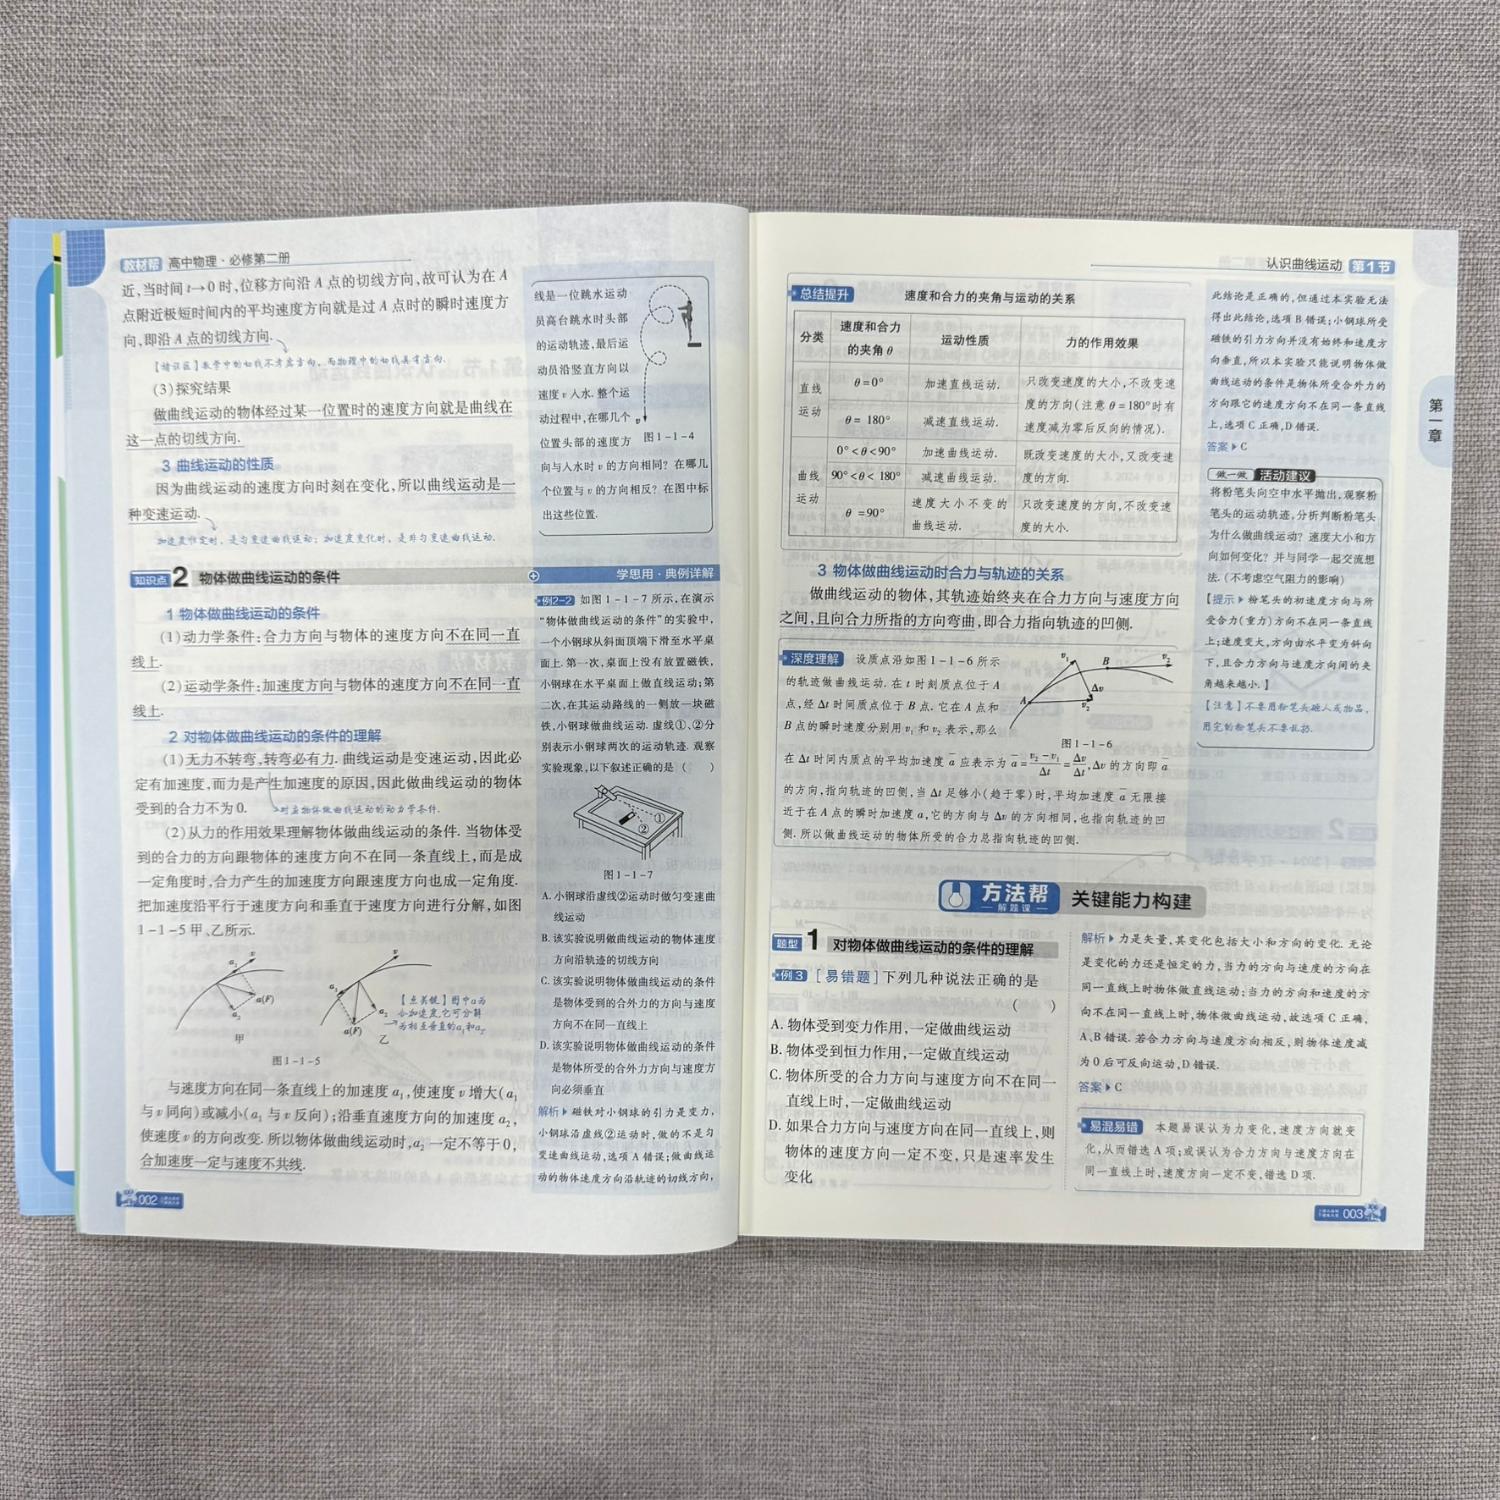 教材帮 高中物理·必修第二册
近,当时间 t→0 时,位移方向沿 A 点的切线方向,故可认为在 A
点附近极短时间内的平均速度方向就是过 A 点时的瞬时速度方
向,即沿 A 点的切线方向.
【错误区】数学中的切线不考虑方向,而物理中的切线具有方向.
(3)探究结果
做曲线运动的物体经过某一位置时的速度方向就是曲线在
这一点的切线方向.
3 曲线运动的性质
因为曲线运动的速度方向时刻在变化,所以曲线运动是一
种变速运动.
加速度恒定时,是匀变速曲线运动;加速度变化时,是非匀变速曲线运动.
知识点 2 物体做曲线运动的条件
1 物体做曲线运动的条件
(1)动力学条件:合力方向与物体的速度方向不在同一直
线上.
(2)运动学条件:加速度方向与物体的速度方向不在同一直
线上.
2 对物体做曲线运动的条件的理解
(1)无力不转弯,转弯必有力.曲线运动是变速运动,因此必
定有加速度,而力是产生加速度的原因,因此做曲线运动的物体
受到的合力不为 0.
对应物体做曲线运动的动力学条件.
(2)从力的作用效果理解物体做曲线运动的条件.当物体受
到的合力的方向跟物体的速度方向不在同一条直线上,而是成
一定角度时,合力产生的加速度方向跟速度方向也成一定角度.
把加速度沿平行于速度方向和垂直于速度方向进行分解,如图
1-1-5 甲、乙所示.
v
a₁
a(F)
a₂
甲
v
a₁
a₂
a(F)
乙
【点关键】图中a为
合加速度,它可分解
为相互垂直的a₁和a₂.
图 1-1-5
与速度方向在同一条直线上的加速度 a₁,使速度 v 增大(a₁
与 v 同向)或减小(a₁ 与 v 反向);沿垂直速度方向的加速度 a₂,
使速度 v 的方向改变.所以物体做曲线运动时,a₂ 一定不等于 0,
合加速度一定与速度不共线.
002
线是一位跳水运动
员高台跳水时头部
的运动轨迹,最后运
动员沿竖直方向以
速度 v 入水.整个运
动过程中,在哪几个
位置头部的速度方
v
图 1-1-4
向与入水时 v 的方向相同?在哪几
个位置与 v 的方向相反?在图中标
出这些位置.
学思用·典例详解
例2-2 如图 1-1-7 所示,在演示
“物体做曲线运动的条件”的实验中,
一个小钢球从斜面顶端下滑至水平桌
面上.第一次,桌面上没有放置磁铁,
小钢球在水平桌面上做直线运动;第
二次,在其运动路线的一侧放一块磁
铁,小钢球做曲线运动.虚线①、②分
别表示小钢球两次的运动轨迹.观察
实验现象,以下叙述正确的是 ( )
①
②
图 1-1-7
A. 小钢球沿虚线②运动时做匀变速曲
线运动
B. 该实验说明做曲线运动的物体速度
方向沿轨迹的切线方向
C. 该实验说明物体做曲线运动的条件
是物体受到的合外力的方向与速度
方向不在同一直线上
D. 该实验说明物体做曲线运动的条件
是物体所受的合外力方向与速度方
向必须垂直
解析▶磁铁对小钢球的引力是变力,
小钢球沿虚线②运动时,做的不是匀
变速曲线运动,选项 A 错误;做曲线运
动的物体速度方向沿轨迹的切线方向,
认识曲线运动 第1节
总结提升 速度和合力的夹角与运动的关系
分类 速度和合力的夹角 θ 运动性质 力的作用效果
直线运动 θ=0° 加速直线运动. 只改变速度的大小,不改变速
度的方向(注意 θ=180°时有
θ= 180° 减速直线运动. 速度减为零后反向的情况).
曲线运动 0°<θ<90° 加速曲线运动. 既改变速度的大小,又改变速
90°<θ<180° 减速曲线运动. 度的方向.
θ =90° 速度大小不变的曲线运动. 只改变速度的方向,不改变速
度的大小.
3 物体做曲线运动时合力与轨迹的关系
做曲线运动的物体,其轨迹始终夹在合力方向与速度方向
之间,且向合力所指的方向弯曲,即合力指向轨迹的凹侧.
深度理解 设质点沿如图 1-1-6 所示
的轨迹做曲线运动.在 t 时刻质点位于 A
点,经 Δt 时间质点位于 B 点.它在 A 点和
B 点的瞬时速度分别用 v₁ 和 v₂ 表示,那么
v₁
B
v₂
Δv
A
v₂
图 1-1-6
在 Δt 时间内质点的平均加速度 a̅ 应表示为 a̅=(v₂-v₁)/Δt=Δv/Δt,Δv 的方向即 a̅
的方向,指向轨迹的凹侧,当 Δt 足够小(趋于零)时,平均加速度 a̅ 无限接
近于在 A 点的瞬时加速度 a,它的方向与 Δv 的方向相同,也指向轨迹的凹
侧.所以做曲线运动的物体所受的合力总指向轨迹的凹侧.
方法帮 解题课 关键能力构建
题型 1 对物体做曲线运动的条件的理解
例 3 [易错题]下列几种说法正确的是
( )
A. 物体受到变力作用,一定做曲线运动
B. 物体受到恒力作用,一定做直线运动
C. 物体所受的合力方向与速度方向不在同一
直线上时,一定做曲线运动
D. 如果合力方向与速度方向在同一直线上,则
物体的速度方向一定不变,只是速率发生
变化
解析▶力是矢量,其变化包括大小和方向的变化.无论
是变化的力还是恒定的力,当力的方向与速度的方向在
同一直线上时物体做直线运动;当力的方向和速度的方
向不在同一直线上时,物体做曲线运动,故选项 C 正确,
A、B 错误.若合力方向与速度方向相反,则物体速度减
为 0 后可反向运动,D 错误.
答案▶C
易混易错 本题易误认为力变化,速度方向就变
化,从而错选 A 项;或误认为合力方向与速度方向在
同一直线上时,速度方向一定不变,错选 D 项.
此结论是正确的,但通过本实验无法
得出此结论,选项 B 错误;小钢球所受
磁铁的引力方向并没有始终和速度方
向垂直,所以本实验只能说明物体做
曲线运动的条件是物体所受合外力的
方向跟它的速度方向不在同一条直线
上,选项 C 正确,D 错误.
答案▶C
做一做 活动建议
将粉笔头向空中水平抛出,观察粉
笔头的运动轨迹,分析判断粉笔头
为什么做曲线运动?速度大小和方
向如何变化?并与同学一起交流想
法.(不考虑空气阻力的影响)
【提示▶粉笔头的初速度方向与所
受合力(重力)方向不在同一条直线
上;速度变大,方向由水平变为斜向
下,且合力方向与速度方向间的夹
角越来越小.】
【注意】不要用粉笔头砸人或物品,
用完的粉笔头不要乱扔.
第一章
003